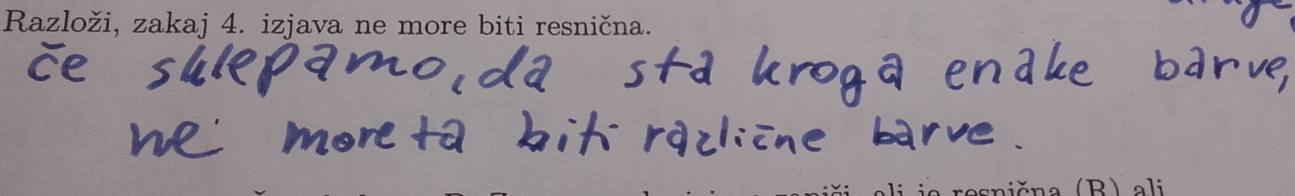 Razloži, zakaj 4. izjava ne more biti resnična.
če sklepamo, da sta kroga enake barve,
ne moreta biti različne barve.
ali je resnična (R) ali